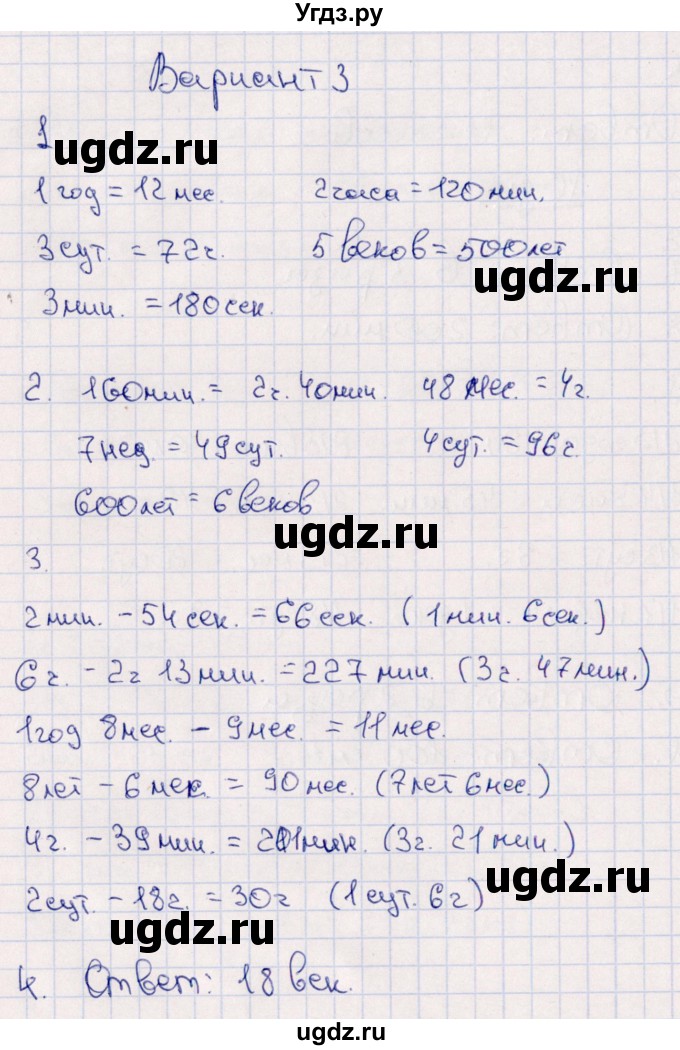 Угдз.ру
Вариант 3
1
ugdz.ru
1 год = 12 мес. 2 часа = 120 мин.
3 сут. = 72 ч. 5 веков = 500 лет
ugdz.ru
3 мин. = 180 сек.
2. 160 мин. = 2 ч. 40 мин. 48 мес. = 4 г.
7 нед = 49 сут. 4 сут. = 96 ч.
600 лет = 6 веков
ugdz.ru
3.
2 мин. - 54 сек. = 66 сек. (1 мин. 6 сек.)
6 ч. - 2 ч 13 мин. = 227 мин. (3 ч. 47 мин.)
1 год 8 мес. - 9 мес. = 11 мес.
8 лет - 6 мес. = 90 мес. (7 лет 6 мес.)
4 ч. - 39 мин. = 201 мин. (3 ч. 21 мин.)
ugdz.ru
2 сут. - 18 ч. = 30 ч (1 сут. 6 ч)
ugdz.ru
4. Ответ: 18 век.
ugdz.ru